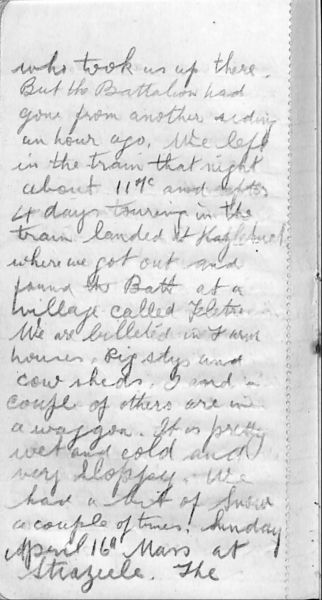 who took us up there.
But the Battalion had
gone from another siding
an hour ago. We left
in the train that night
about 11 and after
4 days touring in the
train landed at
where we got out and
found the Batt at a
village called Fletre
We are billeted in Farm
houses, Pig stys and
cow sheds. I and a
couple of others are in
a waggon. It is pretty
wet and cold and
very sloppy. We
have a bit of snow
a couple of times. Sunday
April 16 Mass at
Strazeele. The